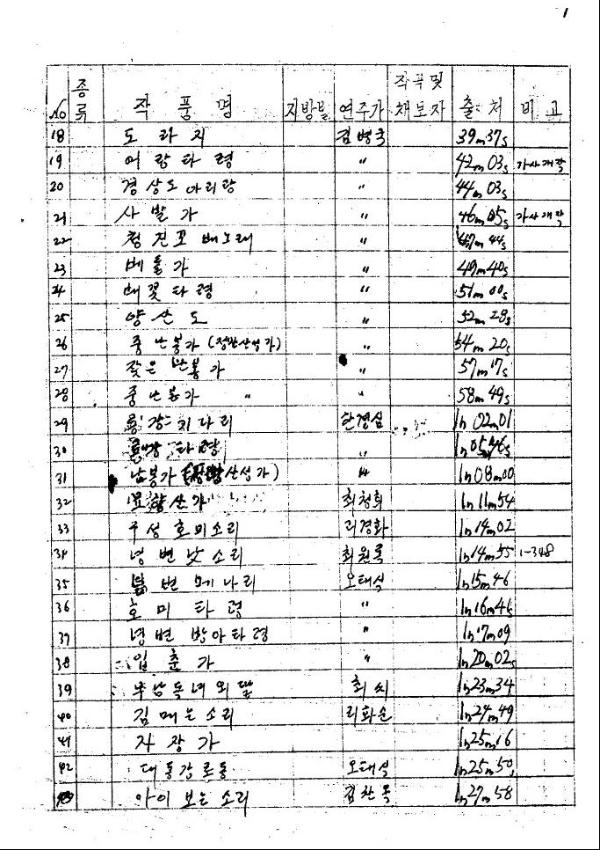 1
No 종류 작품명 지방별 연주가 작곡 및 채보자 출처 비고
18 도라지 김병국 39m37s
19 어랑타령 " 42m03s 가사개작
20 경상도 아리랑 " 44m03s
21 사발가 " 46m05s 가사개작
22 청진포 배노래 " 47m44s
23 베틀가 " 49m40s
24 배꽃타령 " 51m00s
25 양산도 " 52m28s
26 중난봉가 (정방산성가) " 54m20s
27 잦은 난봉가 " 57m17s
28 중난봉가 " " 58m49s
29 룡강 치다리 1h02m01
30 룡강 타령 " 1h05m46s
31 난봉가 산성가) " 1h08m00
32 묘향산가 최청희 1h11m54
33 구성 호미소리 리경화 1h14m02
34 녕변 낫소리 최원록 1h14m55 1-348
35 메나리 오태석 1h15m46
36 호미 타령 " 1h16m46
37 녕변 방아타령 " 1h17m09
38 입춘가 " 1h20m02s
39 최씨 1h23m34
40 김매는소리 리화순 1h24m49
41 자장가 1h25m16
42 대동강 오태석 1h25m50s
43 아이 보는 소리 김찬옥 1h27m58